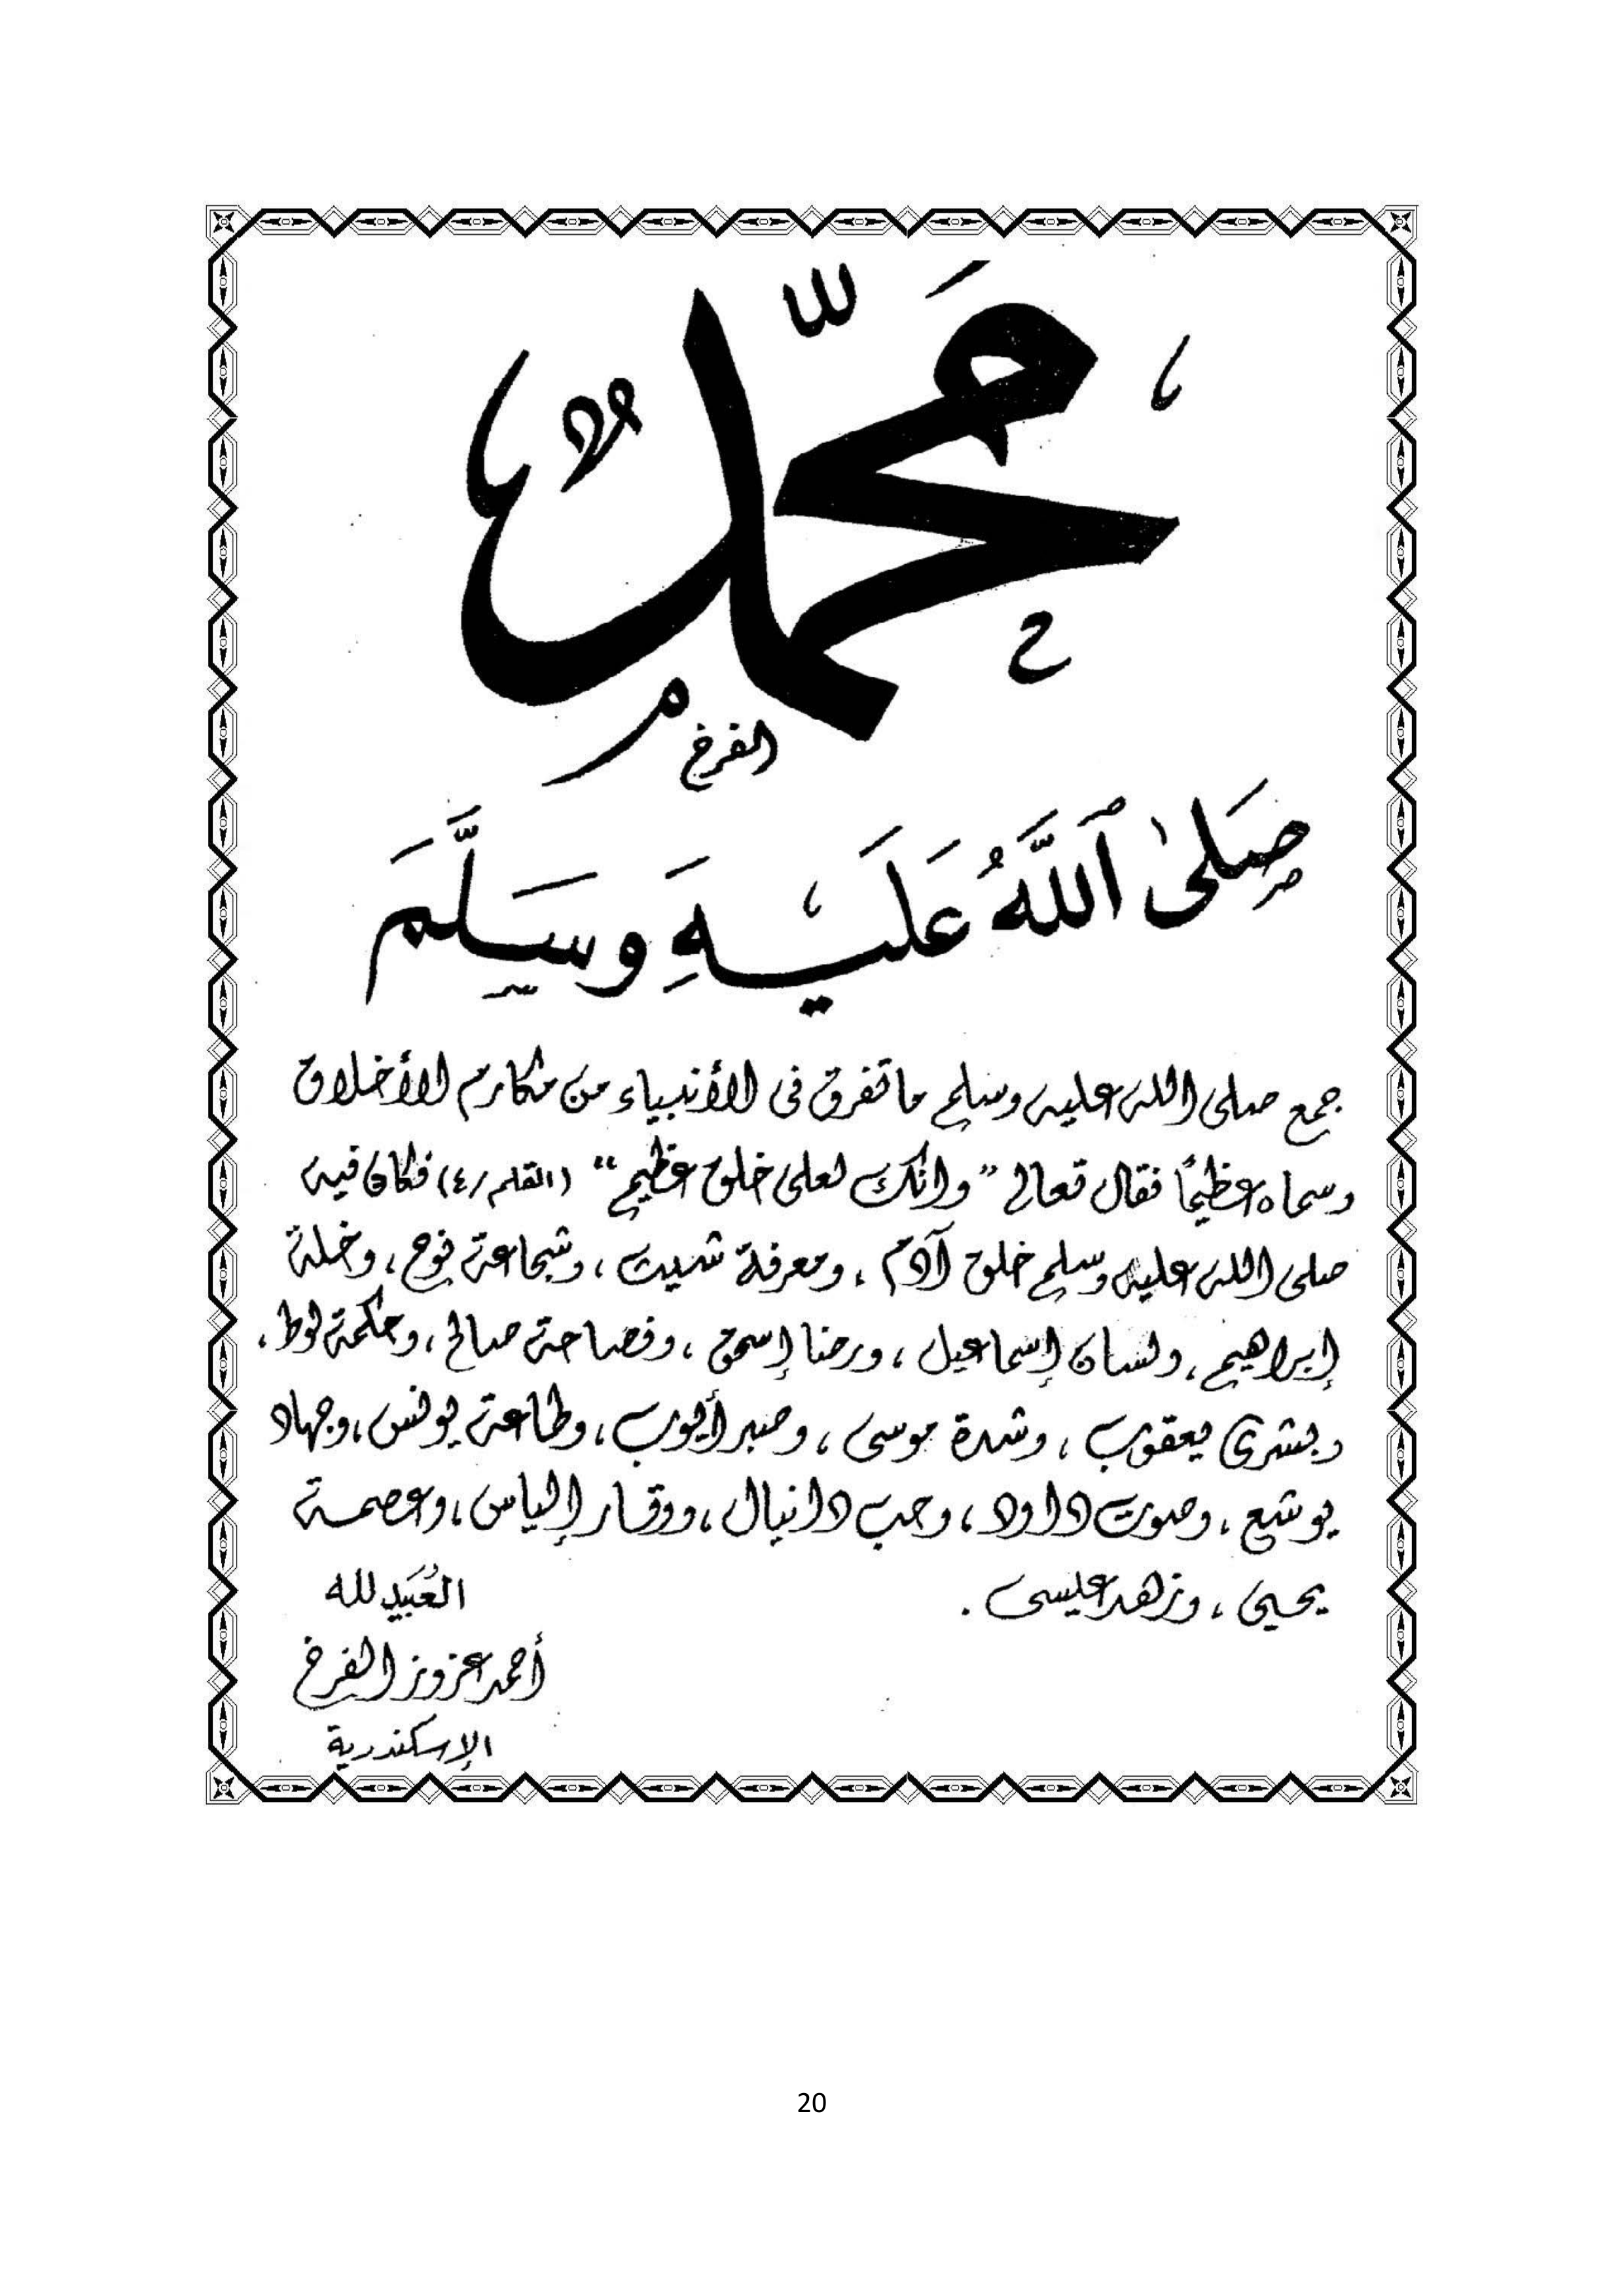 محمد
الفرخ
صَلىٰ ٱللَّهُ عَلَيْهِ وسَلَّمَ
جمع صلى الله عليه وسلم ما تفرق فى الأنبياء من مكارم الأخلاق
وسماه عظيمًا فقال تعالى "وإنك لعلى خلق عظيم" (القلم/٤) فكان فيه
صلى الله عليه وسلم خلق آدم ، ومعرفة شيث ، وشجاعة نوح ، وخلة
إبراهيم ، ولسان إسماعيل ، ورضا إسحق ، وفصاحة صالح ، وحكمة لوط ،
وبشرى يعقوب ، وشدة موسى ، وصبر أيوب ، وطاعة يونس ، وجهاد
يوشع ، وصوت داود ، وحب دانيال ، ووقار إلياس ، وعصمة
يحيى ، وزهد عيسى .
العُبَيد لله
أحمد عزوز الفرخ
الإسكندرية
20